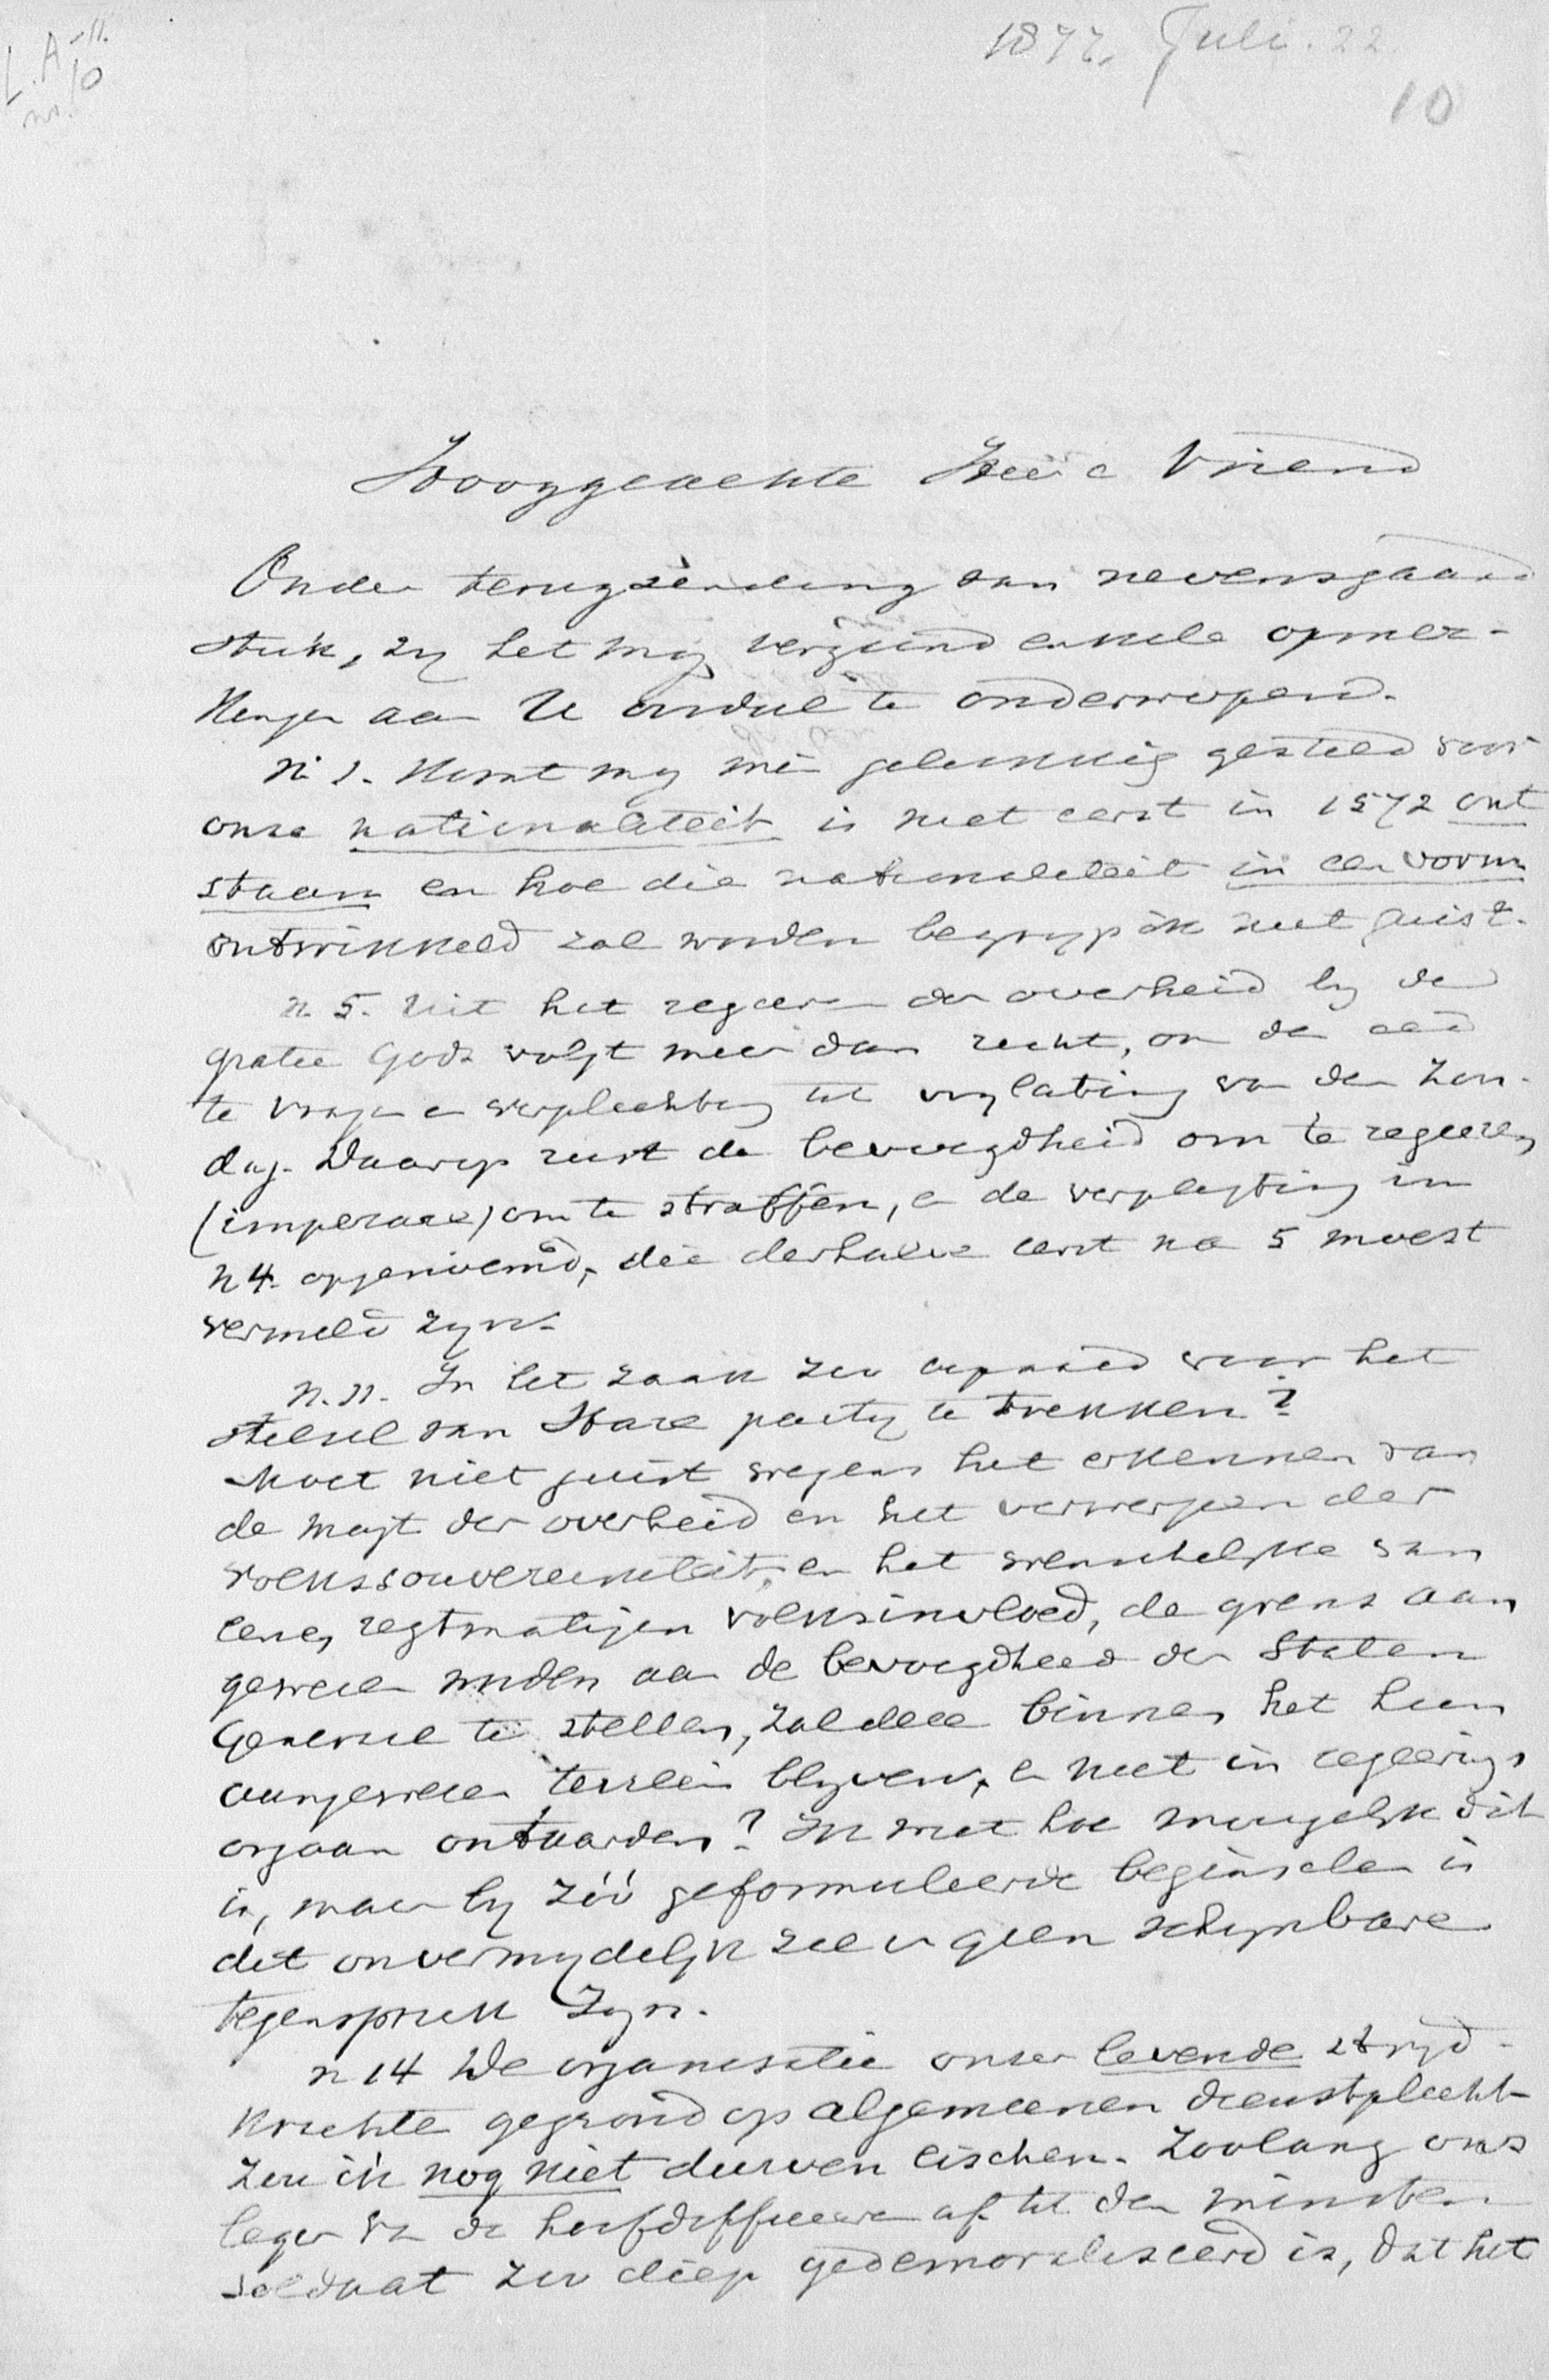 L. A-11.
nr. 10
1872. Juli. 22.
10
Hooggeachte Heer & Vriend
Onder terugzending van nevensgaand
stuk, zij het mij vergund enkele opmer-
kingen aan U oordeel te onderwerpen.
n. 1. Komt mij min gelukkig gesteld voor
onze nationaliteit is niet eerst in 1572 ont
staan en hoe die nationaliteit in een vorm
ontwikkeld zal worden begrijp ik niet juist.
n. 5. Uit het regeeren der overheid bij de
gratie Gods volgt meer dan recht, om den eed
te vragen en verplichting tot vrylating van den Zon-
dag. Daarop rust de bevoegdheid om te regeeren
(imperare) om te straffen, en de verpligting in
n 4. opgenoemd, die derhalve eerst na 5 moest
vermeld zijn.
n. 11. Is het zaak zoo bepaald voor het
stelsel van Hare partij te trekken?
Moet niet juist wegens het erkennen van
de magt der overheid en het verwerpen der
volkssouvereiniteit, en het wenschelijke van
eenen regtmatigen volksinvloed, de grens aan
gewezen worden aan de bevoegdheid der Staten
Generaal te stellen, zal deze binnen het hun
aangewezen terrein blijven, en niet in regeerings
orgaan ontaarden? Ik weet hoe moeyelijk dit
is, maar bij zóó geformuleerde beginselen is
dit onvermijdelijk zal er geen schijnbare
tegenspraak zijn.
n 14 De organisatie onzer levende strijd-
krachten gegrond op algemeenen dienstplicht
zou ik nog niet durven eischen. Zoolang ons
leger van de hoofdofficieren af tot den minsten
soldaat zoo diep gedemoraliseerd is, dat het